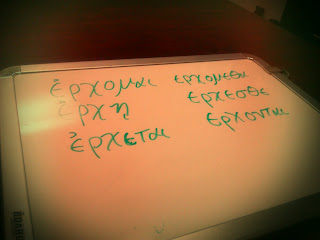 ἔρχομαι ερχομεθα
ἔρχῃ ερχεσθε
ἔρχεται ερχονται